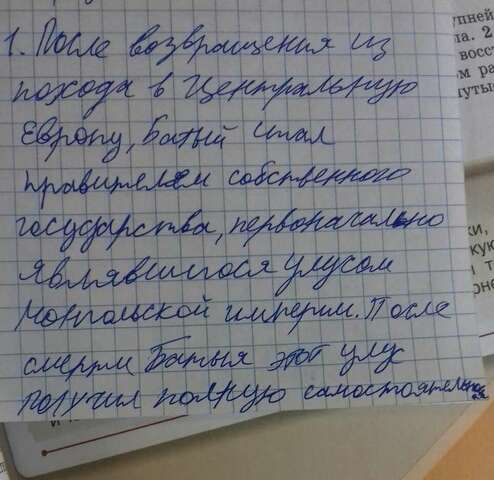 1. После возвращения из
похода в Центральную
Европу, Батый стал
правителем собственного
государства, первоначально
являвшигося улусом
Монгольской империи. После
смерти Батыя этот улус
получил полную самостоятельно
упней
ла. 2
восс
м ра
нуты
ки,
кую